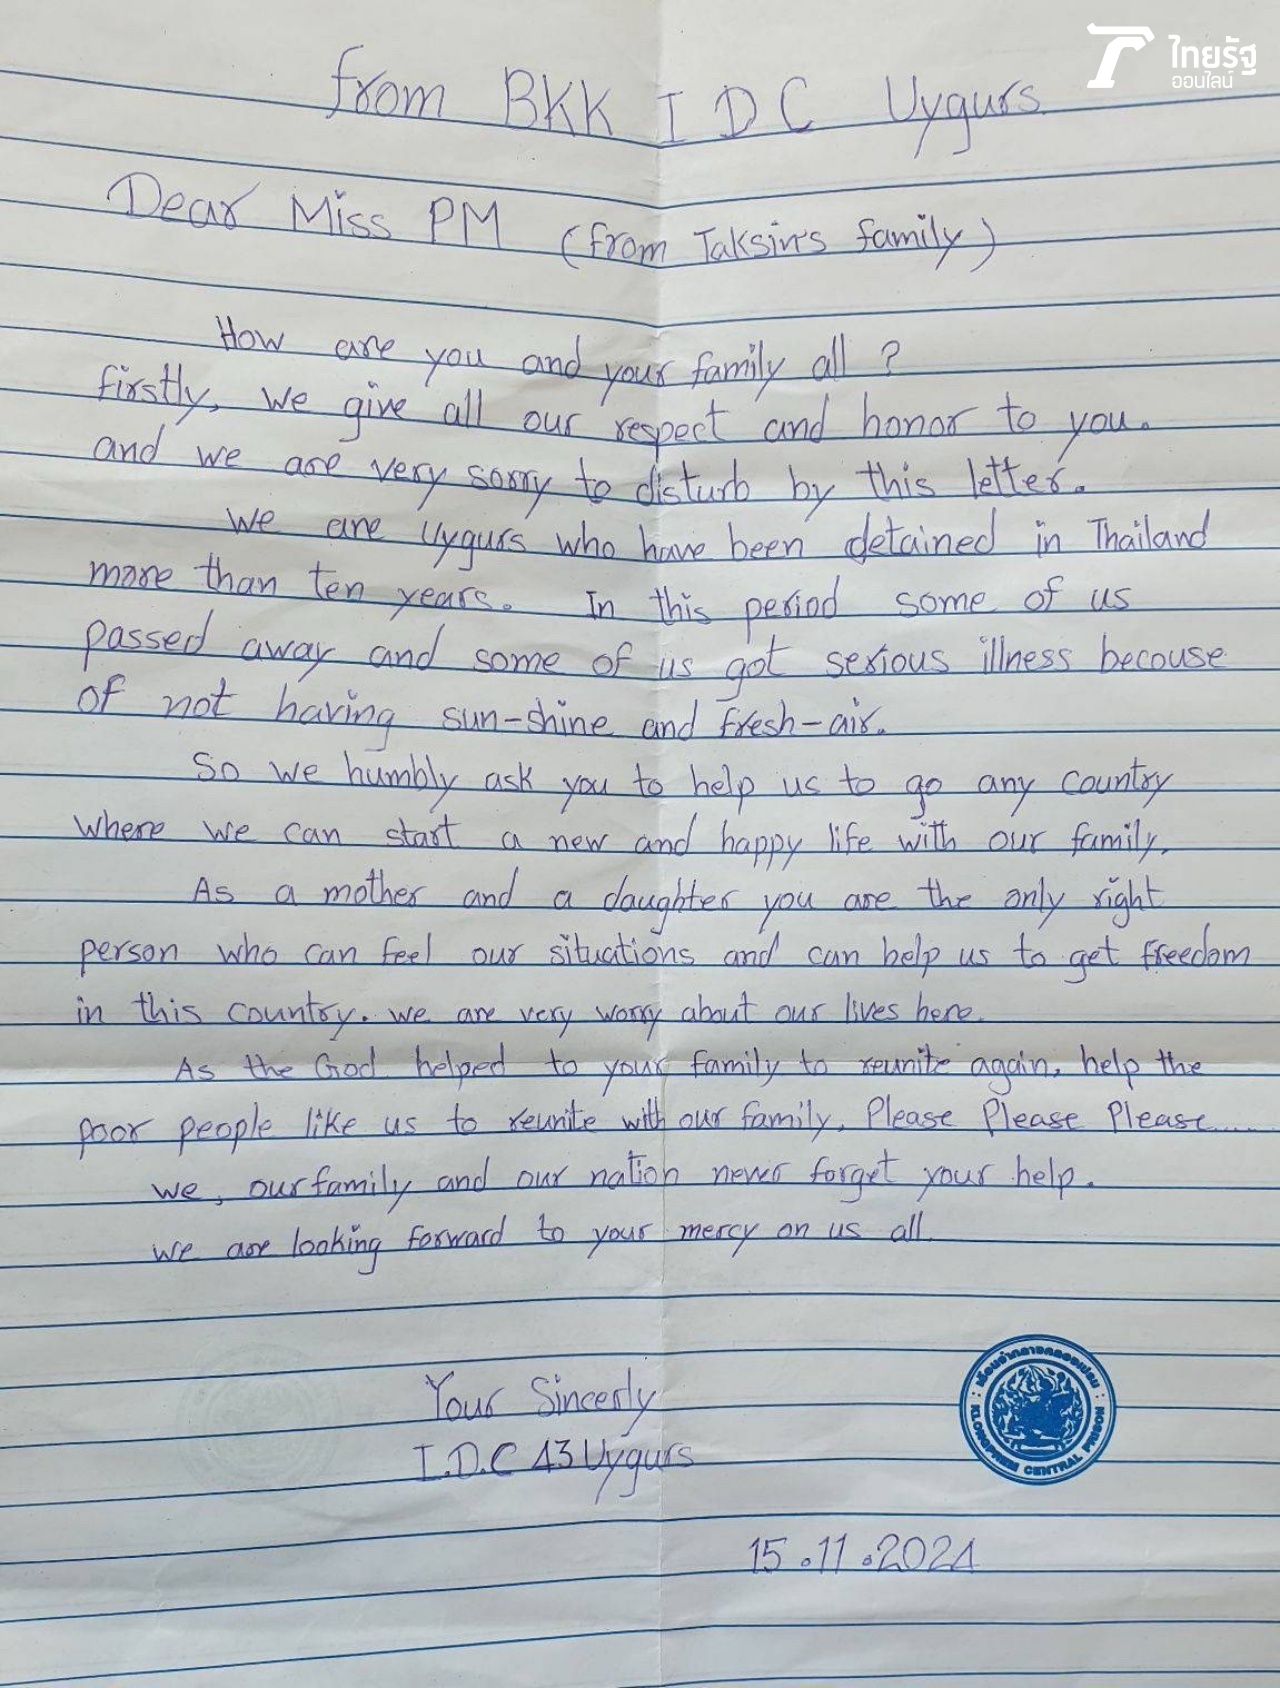 ไทยรัฐ
ออนไลน์
from BKK I D C Uygurs
Dear Miss PM (from Taksin's family)
How are you and your family all ?
firstly, we give all our respect and honor to you.
and we are very sorry to disturb by this letter.
We are Uygurs who have been detained in Thailand
more than ten years. In this period some of us
passed away and some of us got serious illness becouse
of not having sun-shine and fresh-air.
So we humbly ask you to help us to go any country
where we can start a new and happy life with our family.
As a mother and a daughter you are the only right
person who can feel our situations and can help us to get freedom
in this country. we are very worry about our lives here.
As the God helped to your family to reunite again, help the
poor people like us to reunite with our family. Please Please Please.....
we, our family and our nation never forget your help.
we are looking forward to your mercy on us all.
Your Sincerly
I.D.C 43 Uygurs
เรือนจำกลางคลองเปรม
KLONGPREM CENTRAL PRISON
15.11.2024